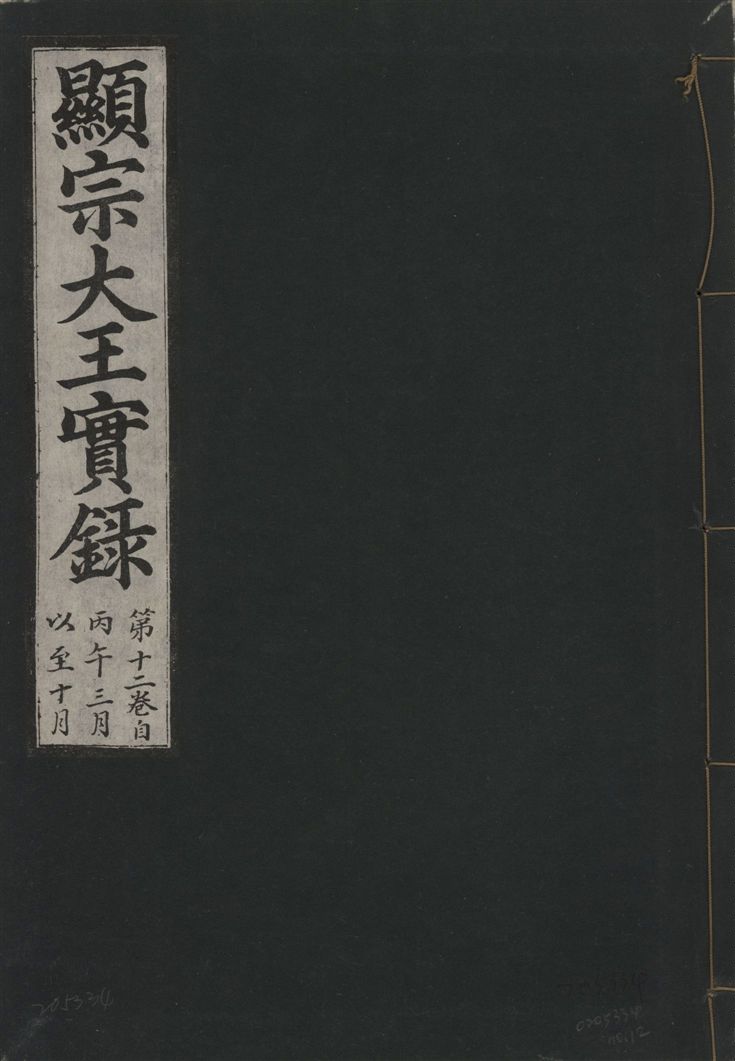 顯宗大王實録
第十二卷自
丙午三月
以至十月
205334
0205334